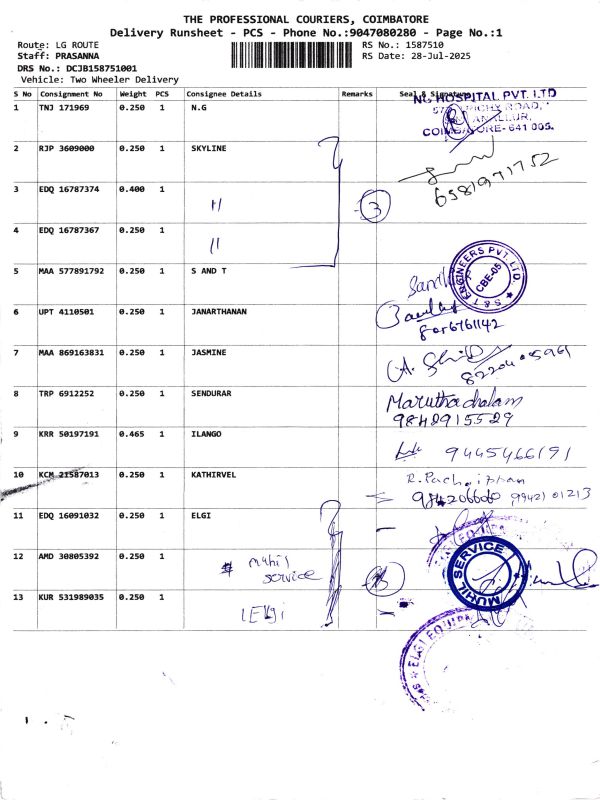 THE PROFESSIONAL COURIERS, COIMBATORE
Delivery Runsheet - PCS - Phone No.:9047080280 - Page No.:1
Route: LG ROUTE RS No.: 1587510
Staff: PRASANNA RS Date: 28-Jul-2025
DRS No.: DCJB158751001
Vehicle: Two Wheeler Delivery
S No Consignment No Weight PCS Consignee Details Remarks Seal & Signature
NG HOSPITAL PVT. LTD
1 TNJ 171969 0.250 1 N.G
COIMBATORE- 641 005.
2 RJP 3609000 0.250 1 SKYLINE
6581971752
3 EDQ 16787374 0.400 1 〃 3
4 EDQ 16787367 0.250 1 〃
5 MAA 577891792 0.250 1 S AND T
S & T ENGINEERS PVT. LTD.
CBE-05
6 UPT 4110501 0.250 1 JANARTHANAN
7 MAA 869163831 0.250 1 JASMINE
8 TRP 6912252 0.250 1 SENDURAR Maruthachalam
9842915529
9 KRR 50197191 0.465 1 ILANGO 9445466191
10 KCM 21587013 0.250 1 KATHIRVEL
9942101213
11 EDQ 16091032 0.250 1 ELGI
12 AMD 30805392 0.250 1 Muhil service
MUHIL SERVICE
13 KUR 531989035 0.250 1 Elgi
ELGI EQUIPM